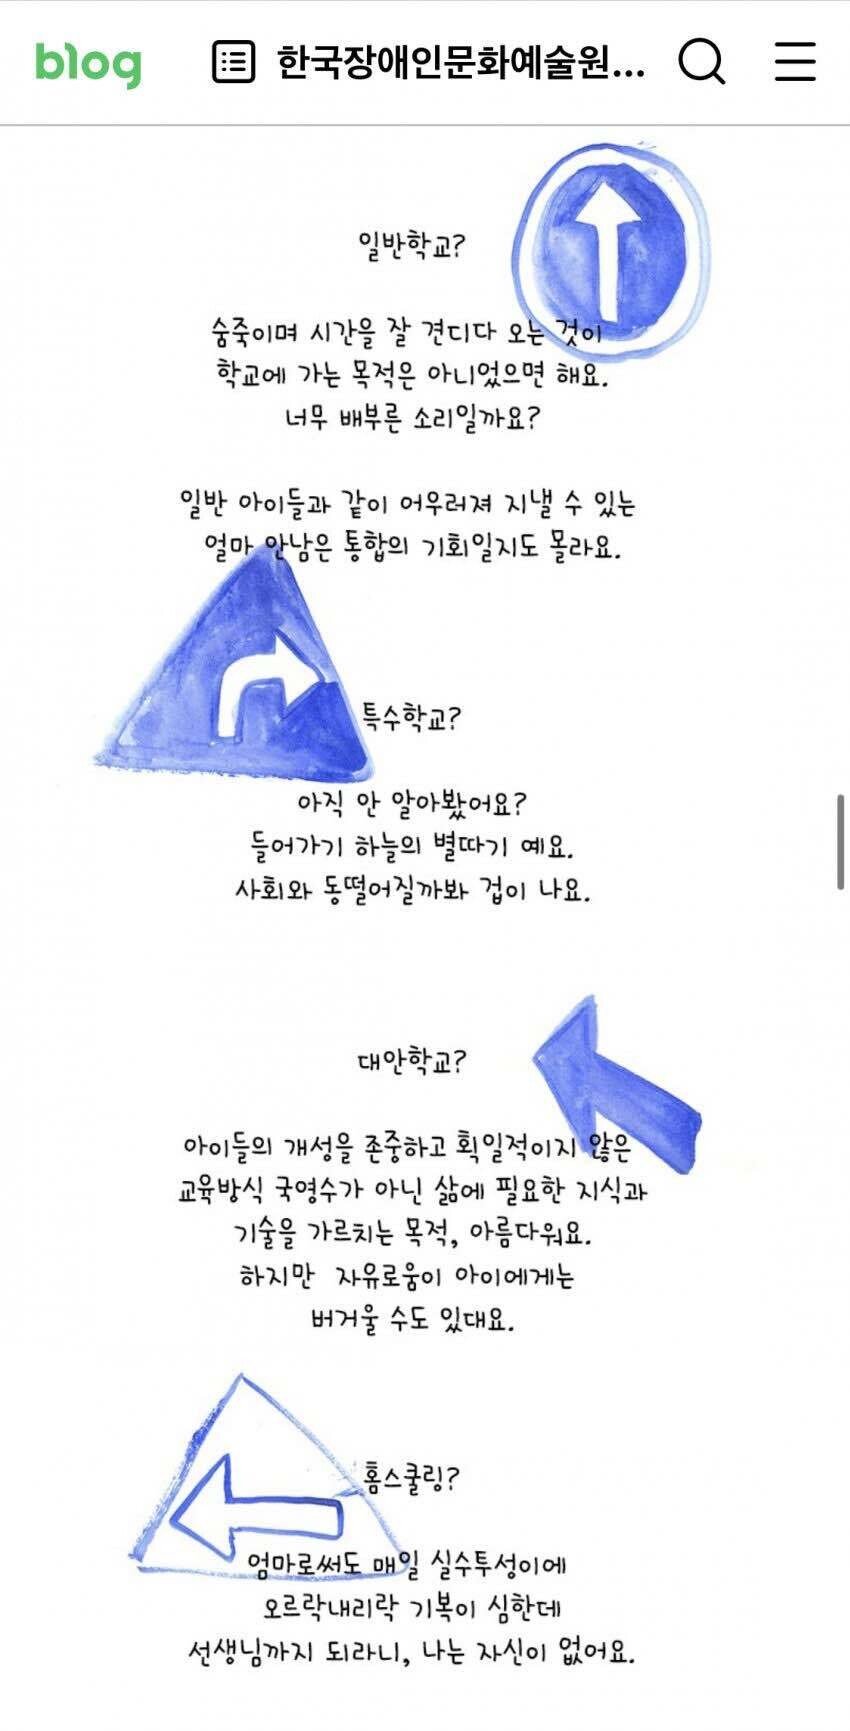 blog
한국장애인문화예술원...
일반학교?
숨죽이며 시간을 잘 견디다 오는 것이
학교에 가는 목적은 아니었으면 해요.
너무 배부른 소리일까요?
일반 아이들과 같이 어우러져 지낼 수 있는
얼마 안남은 통합의 기회일지도 몰라요.
특수학교?
아직 안 알아봤어요?
들어가기 하늘의 별따기 예요.
사회와 동떨어질까봐 겁이 나요.
대안학교?
아이들의 개성을 존중하고 획일적이지 않은
교육방식 국영수가 아닌 삶에 필요한 지식과
기술을 가르치는 목적, 아름다워요.
하지만 자유로움이 아이에게는
버거울 수도 있대요.
홈스쿨링?
엄마로써도 매일 실수투성이에
오르락내리락 기복이 심한데
선생님까지 되라니, 나는 자신이 없어요.